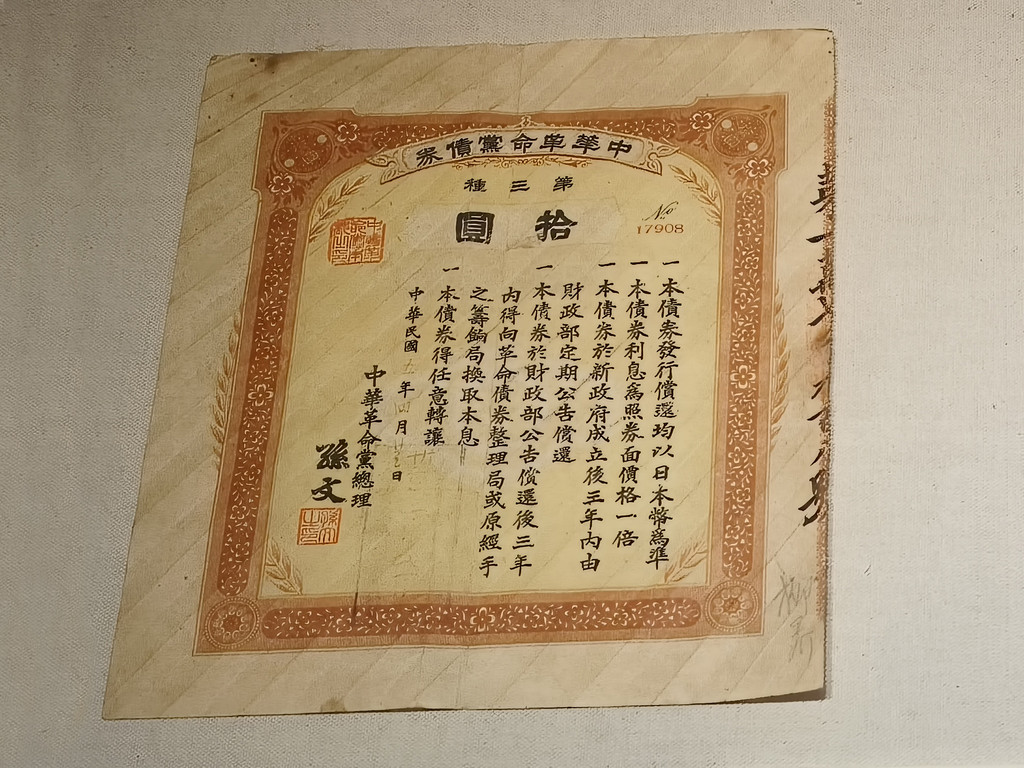 中華革命黨債券
第三種
拾圓
No
17908
一本債券發行償還均以日本幣爲準
一本債券利息爲照券面價格一倍
一本債券於新政府成立後三年內由
財政部定期公告償還
一本債券於財政部公告償還後三年
內得向革命債券整理局或原經手
之籌餉局換取本息
一本債券得任意轉讓
中華民國五年四月廿 日
中華革命黨總理
孫文
中華革命黨本部之印
孫文之印